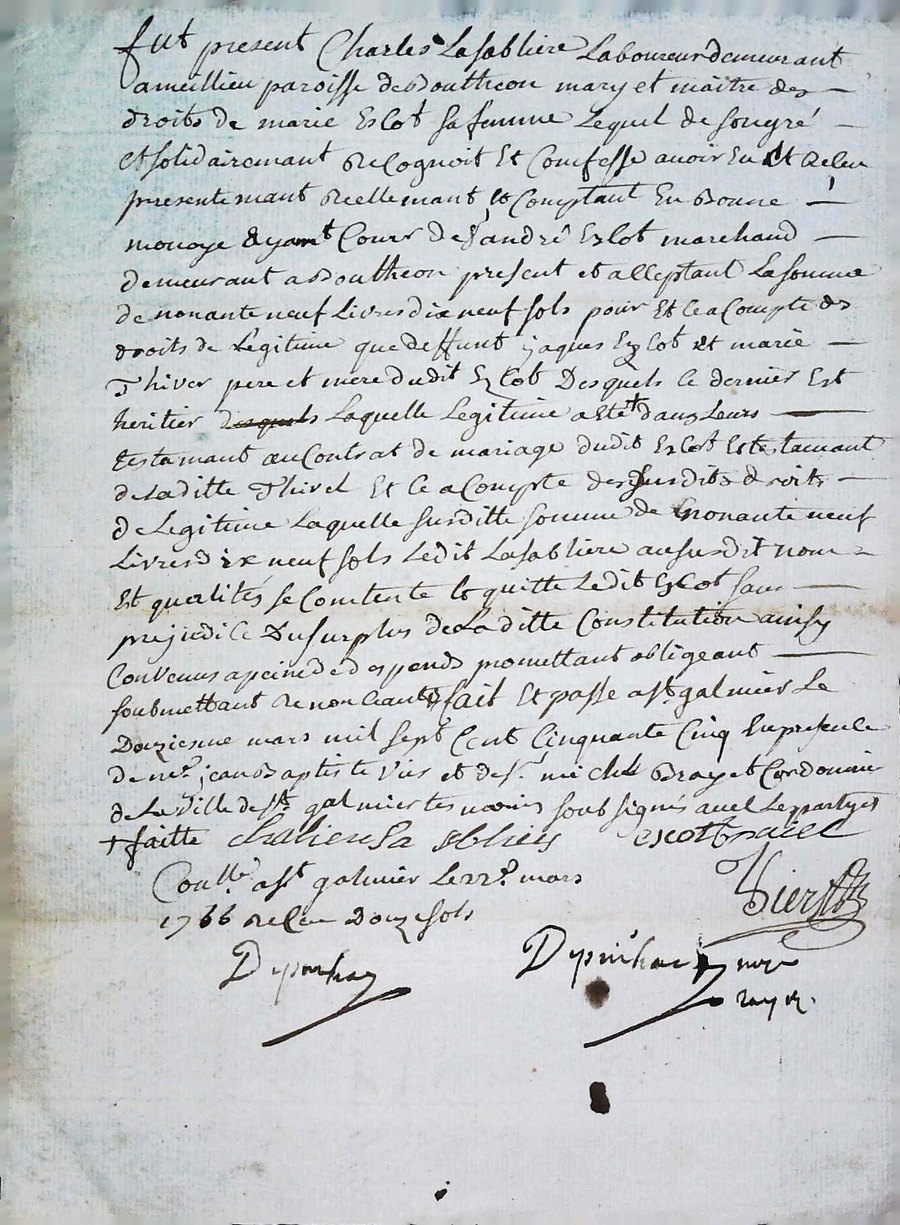 fut present Charles Lasabliere Laboureur demeurant
a meillieu paroisse de Boutheon mary et maitre des
droits de marie Escot sa femme Lequel de son gré
et solidairemant recognoit Et Confesse avoir Eu Et Receu
presentemant reellemant et Comptant En Bonne
monoye ayant Cour de Sr andré Escot marchand
demeurant a Boutheon present et acceptant La somme
de nonante neuf Livres dix neuf sols pour Et Ce a Compte des
droits de Legitime que deffunt jaques Escot Et marie
Thivel pere et mere dudit Escot Desquels Ce dernier Est
heritier desquels Laquelle Legitime a Eté dans Leurs
testamant au Contrat de mariage dudit Escot Et testamant
de La ditte Thivel Et Ce a Compte des susdits droits
de Legitime Laquelle susditte somme de nonante neuf
Livres dix neuf sols Ledit Lasabliere au susdit nom
Et qualités se Contente Et quitte Ledit Escot sans
prejudice Du surplus de La ditte Constitution ainsy
Convenus a peine de despends promettant obligeant
soubmettant Renonceant fait Et passé a St galmier Le
Douzieme mars mil sept Cent Cinquante Cinq En presence
de me jean Baptiste Vier et de Sr michel Brayet Cordonnier
de La Ville de St galmier temoins soubsignés avec Les partyes
+ faitte Escot brayet
Conllé a St galmier Le 22e mars
1766 receu Douze sols
Vier